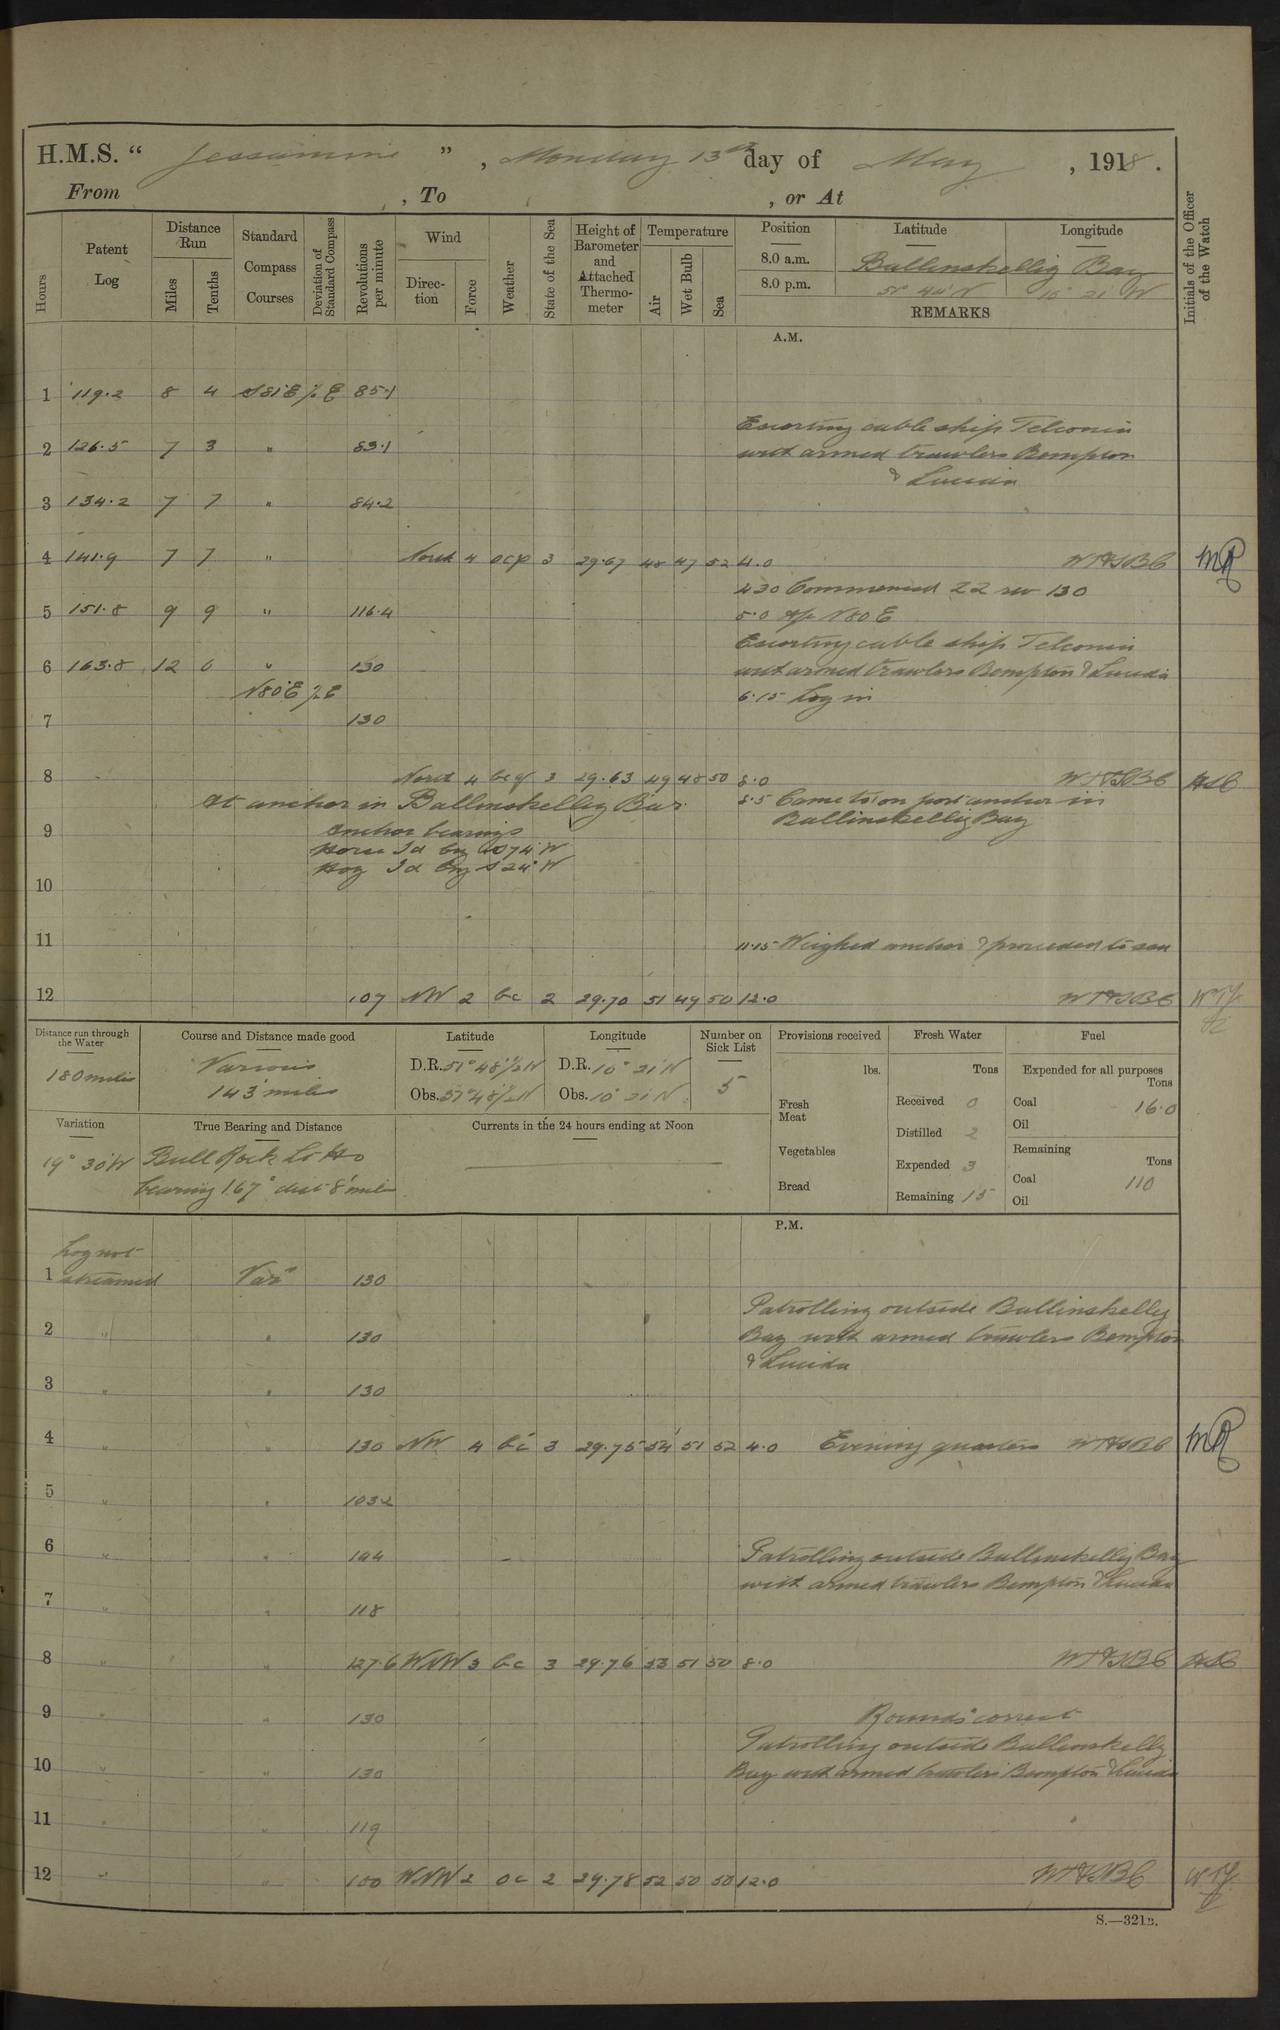 H.M.S. " Jessamine " , Monday 13th day of May , 1918 .
From , To , or At
Hours
Patent Log
Distance Run
Miles
Tenths
Standard Compass Courses
Deviation of Standard Compass
Revolutions per minute
Wind
Direction
Force
Weather
State of the Sea
Height of Barometer and Attached Thermometer
Temperature
Air
Wet Bulb
Sea
Position Latitude Longitude
8.0 a.m. Ballinskellig Bay
8.0 p.m. 51° 44' N 10° 21' W
REMARKS
Initials of the Officer of the Watch
A.M.
1 119.2 8 4 S81°E 85.1
Escorting cable ship Telconia
2 126.5 7 3 " 83.1 with armed trawlers Bempton
& Lucida
3 134.2 7 7 " 84.2
4 141.9 7 7 " North 4 ocp 3 29.67 48 47 52 4.0
4.30 Commenced 22 rev 130
5 151.8 9 9 " 116.4 5.0 A/c N80E
Escorting cable ship Telconia
6 163.8 12 0 " 130 with armed trawlers Bempton & Lucida
N80°E 6.15 Log in
7 130
8 North 4 bcq 3 29.63 49 48 50 8.0
At anchor in Ballinskellig Bay. 8.5 Came to on port anchor in
9 Anchor bearings Ballinskellig Bay
Horse Id brg 74 W
Hog Id brg S 24° W
10
11 11.15 Weighed anchor & proceeded to sea
12 107 NW 2 bc 2 29.70 51 49 50 12.0
Distance run through the Water
180 miles
Course and Distance made good
Various
143 miles
Latitude
D.R. 51° 48½' N
Obs. 51° 48½' N
Longitude
D.R. 10° 21' W
Obs. 10° 21' W
Number on Sick List
5
Provisions received
lbs.
Fresh Meat
Vegetables
Bread
Fresh Water
Tons
Received 0
Distilled 2
Expended 3
Remaining 15
Fuel
Expended for all purposes
Tons
Coal 16.0
Oil
Remaining
Tons
Coal 110
Oil
Variation
19° 30' W
True Bearing and Distance
Bull Rock Lt Ho
bearing 167° dist 8 miles
Currents in the 24 hours ending at Noon
P.M.
Log not
1 streamed Var 130
Patrolling outside Ballinskellig
2 " " 130 Bay with armed trawlers Bempton
& Lucida
3 " " 130
4 " " 130 NW 4 bc 3 29.75 54 51 52 4.0 Evening quarters
5 " " 103.2
6 " " 144 Patrolling outside Ballinskellig Bay
with armed trawlers Bempton & Lucida
7 " " 118
8 " " 127.6 WNW 3 bc 3 29.76 53 51 50 8.0
9 " " 130 Rounds correct
Patrolling outside Ballinskellig
10 " " 130 Bay with armed trawlers Bempton & Lucida
11 " " 119
12 " " 100 WNW 2 oc 2 29.78 52 50 50 12.0
S.—321B.